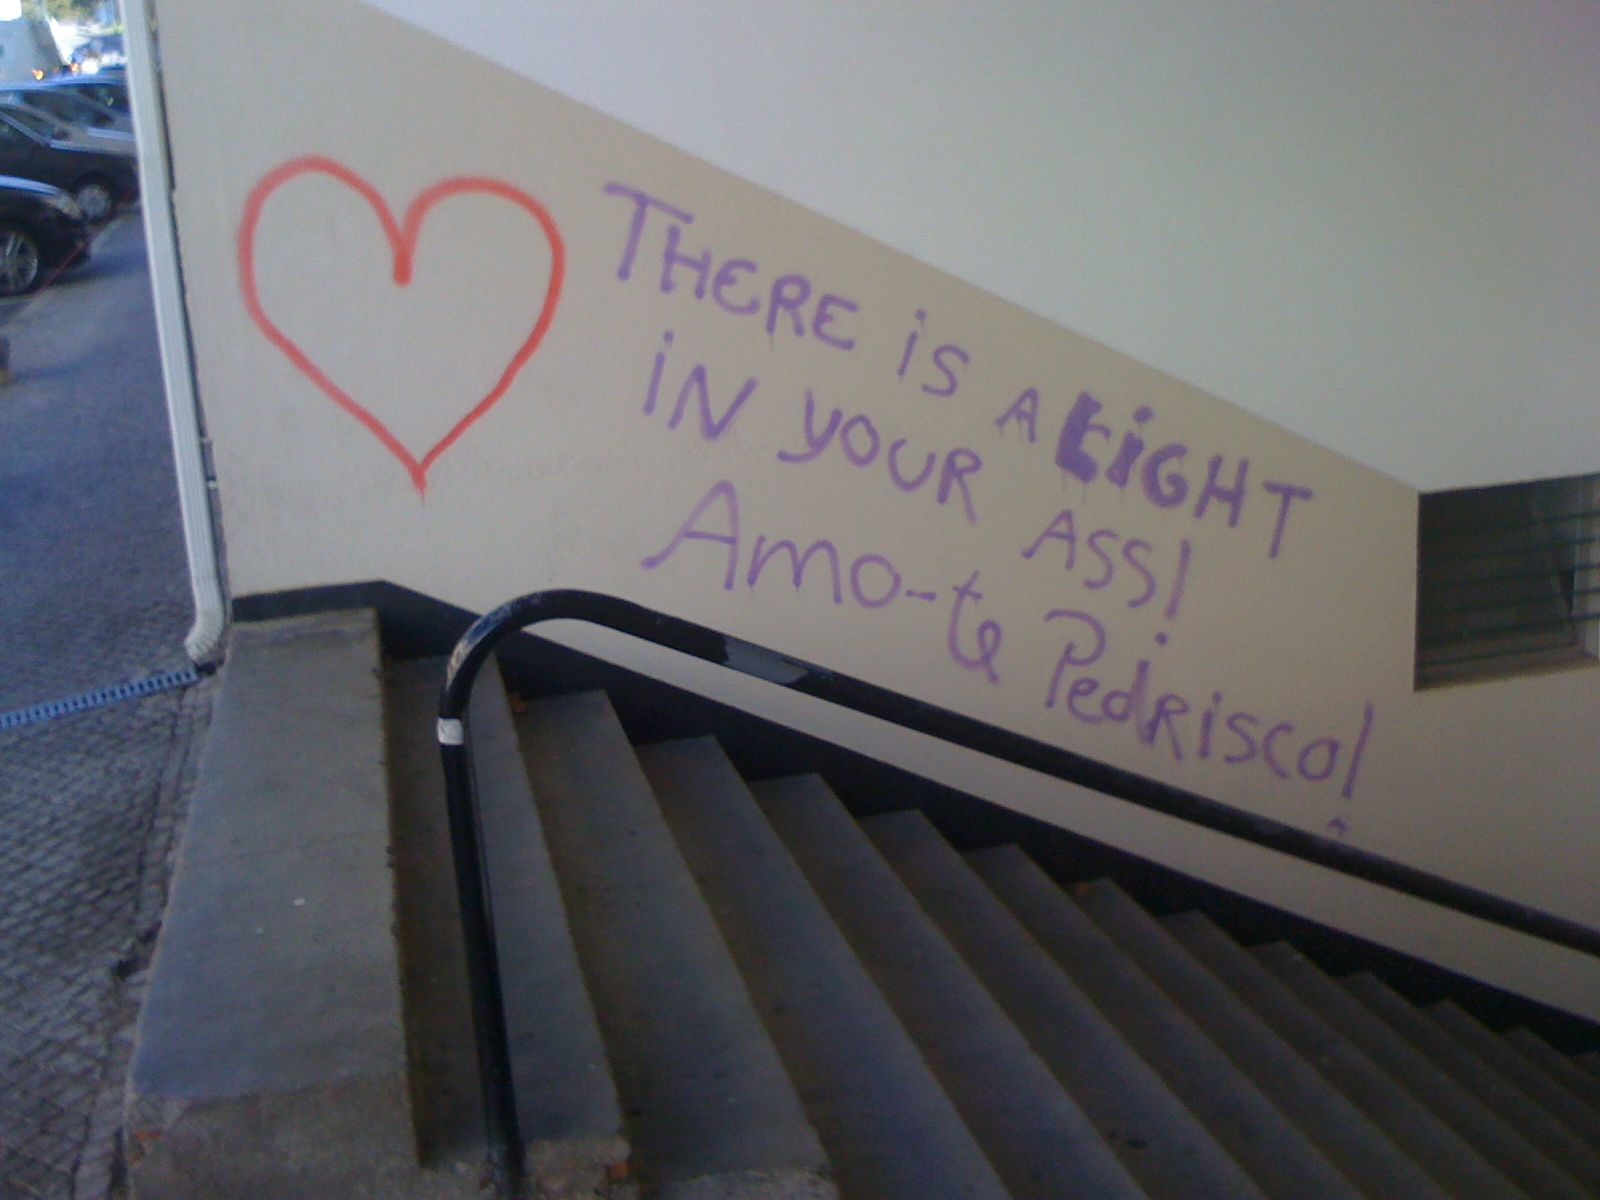 THERE is A LiGHT
iN YOUR ASS!
Amo-te Pedrisco!